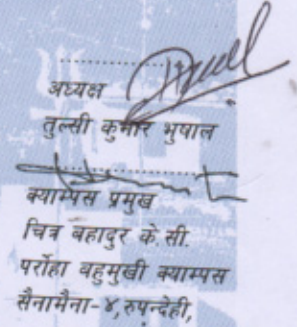 अध्यक्ष
तुल्सी कुमार भुषाल
क्याम्पस प्रमुख
चित्र बहादुर के.सी.
पर्रोहा बहुमुखी क्याम्पस
सैनामैना-४,रुपन्देही,